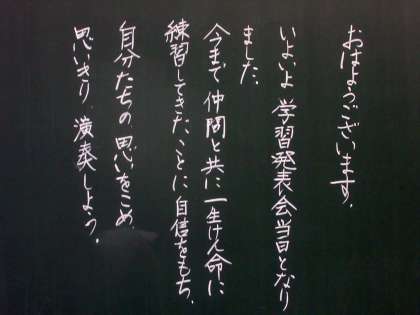 おはようございます。
いよいよ学習発表会当日となり
ました。
今まで仲間と共に一生けん命に
練習してきたことに自信をもち、
自分たちの思いをこめ
思いきり演奏しよう。